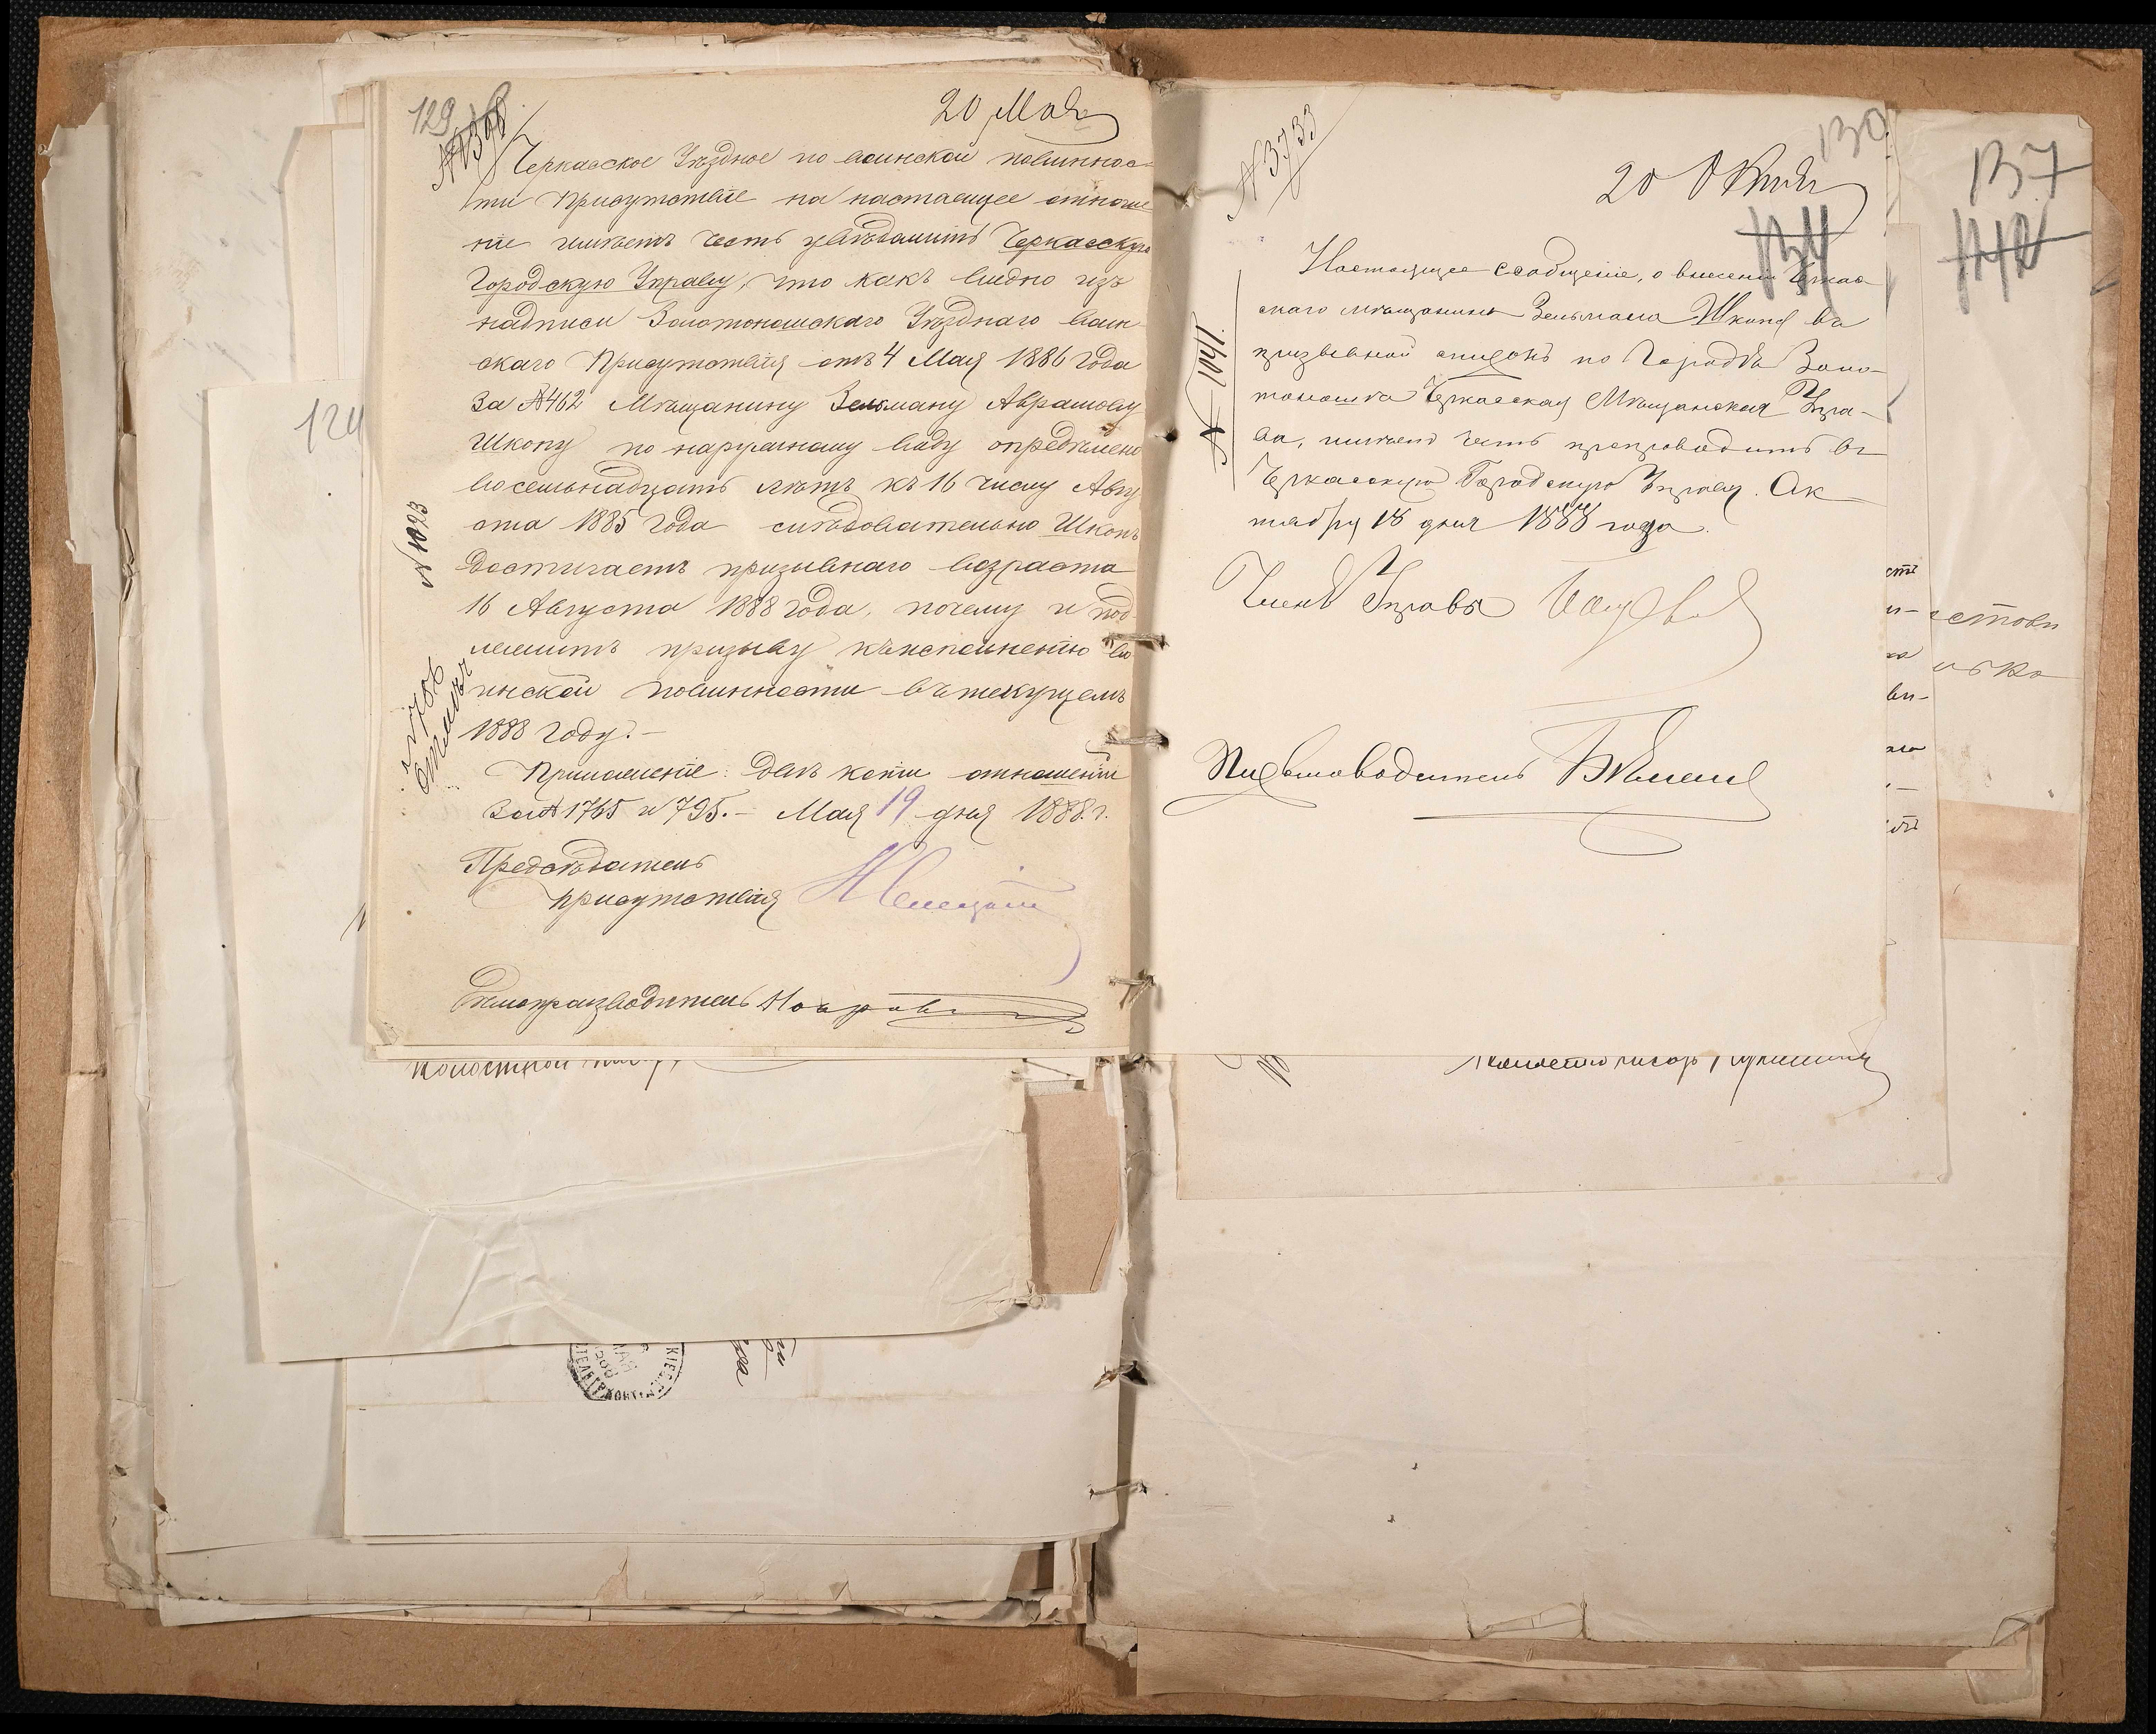 129
20 Мая
Черкасское Уѣздное по воинской повиннос-
ти Присутствіе на настоящее отноше
ніе имѣетъ честь увѣдомить Черкасскую
Городскую Управу, что какъ видно изъ
надписи Золотоношскаго Уѣзднаго воин-
скаго Присутствія отъ 4 Мая 1886 года
за №462 Мѣщанину Зельману Аврамову
Шкопу по наружному виду опредѣлено
восемьнадцать лѣтъ къ 16 числу Авгу
ста 1885 года слѣдовательно Шкопъ
достигаетъ призывнаго возраста
16 Августа 1888 года, почему и под
лежитъ призыву къ исполненію во
инской повинности въ текущемъ
1888 году.-
Приложеніе: двѣ копіи отношеній
за №1765 и 795.- Мая 19 дня 1888 г.
Предсѣдатель
присутствія
Дѣлопроизводитель
№ 1093
124
130
№ 3733
20 Октя
134
Настоящее сообщеніе, о внесеніи Черкас
скаго мѣщанина Зельмана Шкопа въ
призывной списокъ по Городу Золо-
тоноша Черкасская Мѣщанская Упра-
ва, имѣетъ честь препроводить въ
Черкасскую Городскую Управу. Ок
тября 18 дня 1888 года.
№ 1041.
Членъ Управы
Письмоводитель
137
142